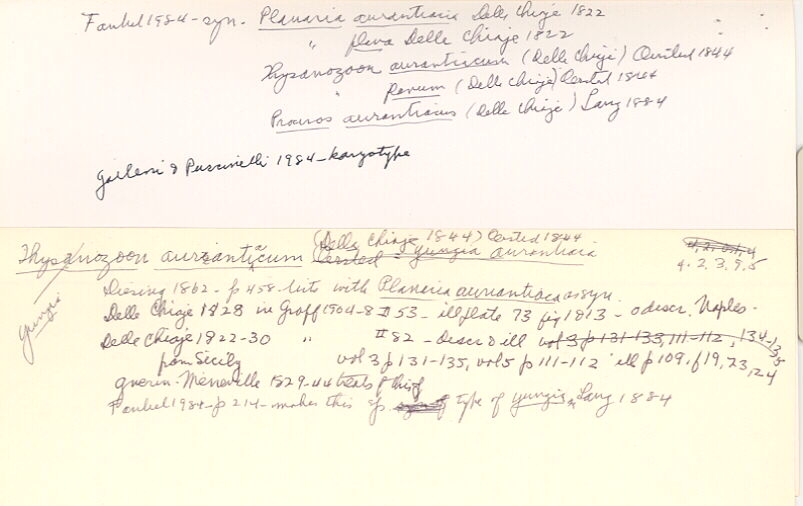 Faubel 1984 - syn. Planaria aurantiaca Delle Chiaje 1822
" flava Delle Chiaje 1822
Thysanozoon aurantiacum (Delle Chiaje) Oersted 1844
" flavum (Delle Chiaje) Oersted 1844
Proceros aurantiacus (Delle Chiaje) Lang 1884
Galleni & Puccinelli 1984 - karyotype
(Delle Chiaje 1844) Oersted 1844
Thysanozoon aurantiacum Oersted = yungia aurantiaca
4.2.3.9.5
yungia
Diesing 1862 - p 458 - lists with Planaria aurantiaca as syn.
Delle Chiaje 1828 in Graff 1904-8 # 53 - ill plate 73 fig 1813 - o descr. Naples -
Delle Chiaje 1822-30 " # 82 - Descr & ill vol 3 p 131-133, 111-112, 134-135
from Sicily vol 3 p 131-135, vol 5 p 111-112 ill p 109. f 19, 23, 24
Guerin-Meneville 1829-44 treats of this sp
Faubel 1984 - p 214 - makes this sp. type of yungia Lang 1884